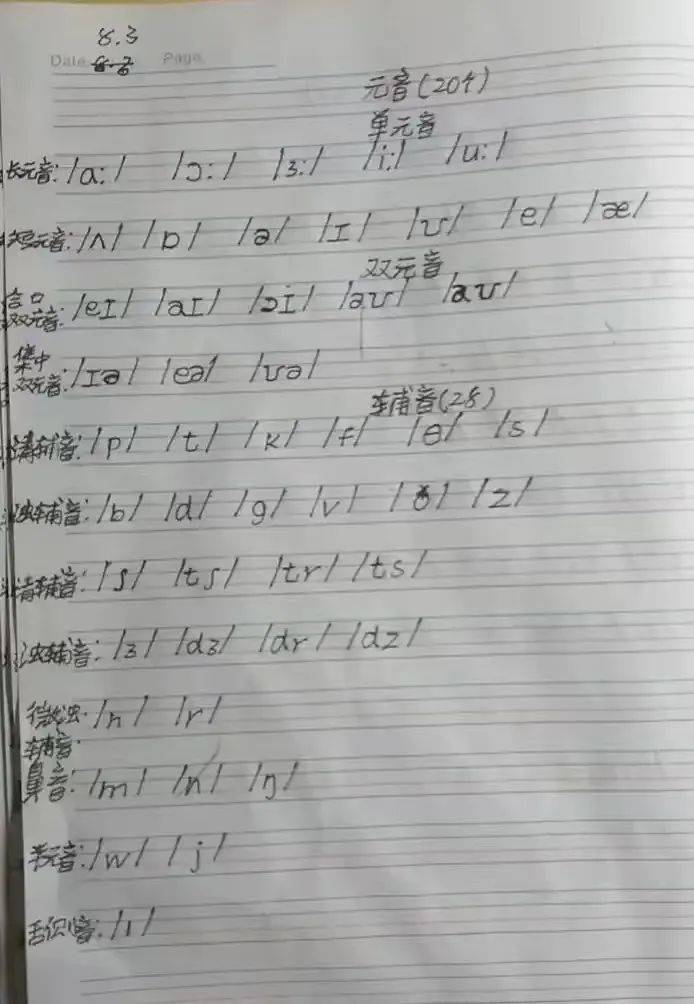 8.3
Date Page
元音(20个)
单元音
长元音: /ɑː/ /ɔː/ /ɜː/ /iː/ /uː/
短元音: /ʌ/ /ɒ/ /ə/ /ɪ/ /ʊ/ /e/ /æ/
双元音
合口双元音: /eɪ/ /aɪ/ /ɔi/ /əʊ/ /aʊ/
集中双元音: /ɪə/ /eə/ /ʊə/
辅音(28)
清辅音: /p/ /t/ /k/ /f/ /θ/ /s/
浊辅音: /b/ /d/ /g/ /v/ /ð/ /z/
清辅音: /ʃ/ /tʃ/ /tr/ /ts/
浊辅音: /ʒ/ /dʒ/ /dr/ /dz/
/h/ /r/
辅音:
鼻音: /m/ /n/ /ŋ/
半元音: /w/ /j/
/l/